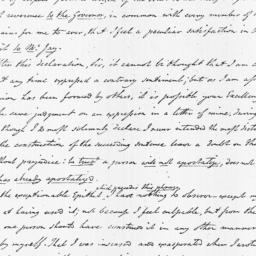 reverence to the Governor, in common with every member of
for me to ever, that I feel a peculiar satisfaction in
to Mr. Jay.
this declaration, Sir, it cannot be thought that I am
any time expressed a contrary sentiment; but as I am
has been formed by others, it is possible your Excellency
judgment on an expression in a letter of mine,
though I do most solemnly declare I never intended the most
the construction of the succeeding sentence leave a doubt on the
prejudice: to trust a person will not apostatize, does not
has already apostatized
which precedes this phrase
exceptionable Epithet I have nothing to observe except
at having used it; not because I feel culpable, but from the
one person should have construed it in any other manner
by myself. That I was incensed and exasperated when I wrote